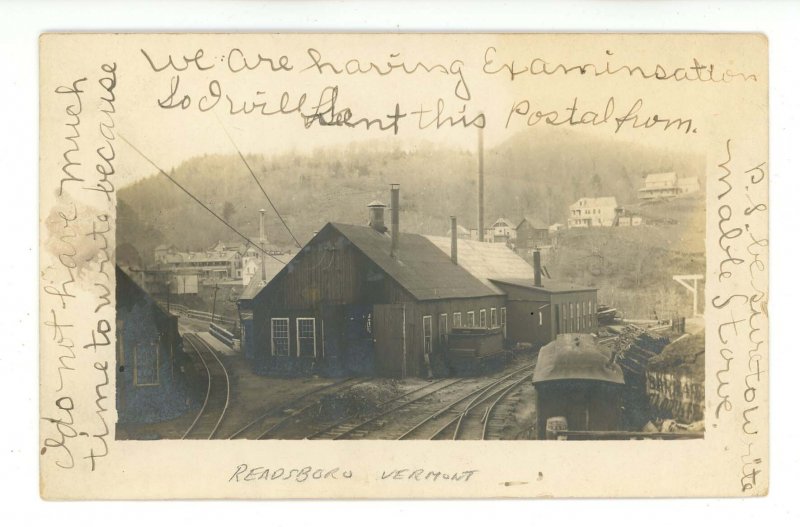 We are having Examinsation
So I will
Kent this Postal from.
I do not have much
time to write because
P.S. be sure to write
Mable Stowe.
READSBORO VERMONT